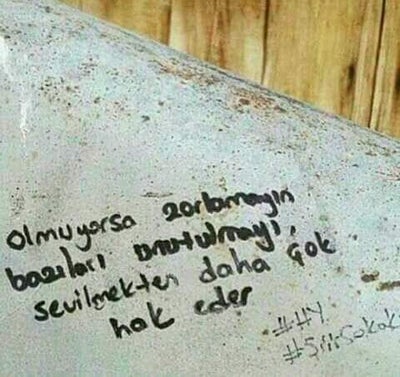 olmuyorsa zorlamayın
bazıları unutulmayı,
sevilmekten daha çok
hak eder
##HY
#ŞiirSokak